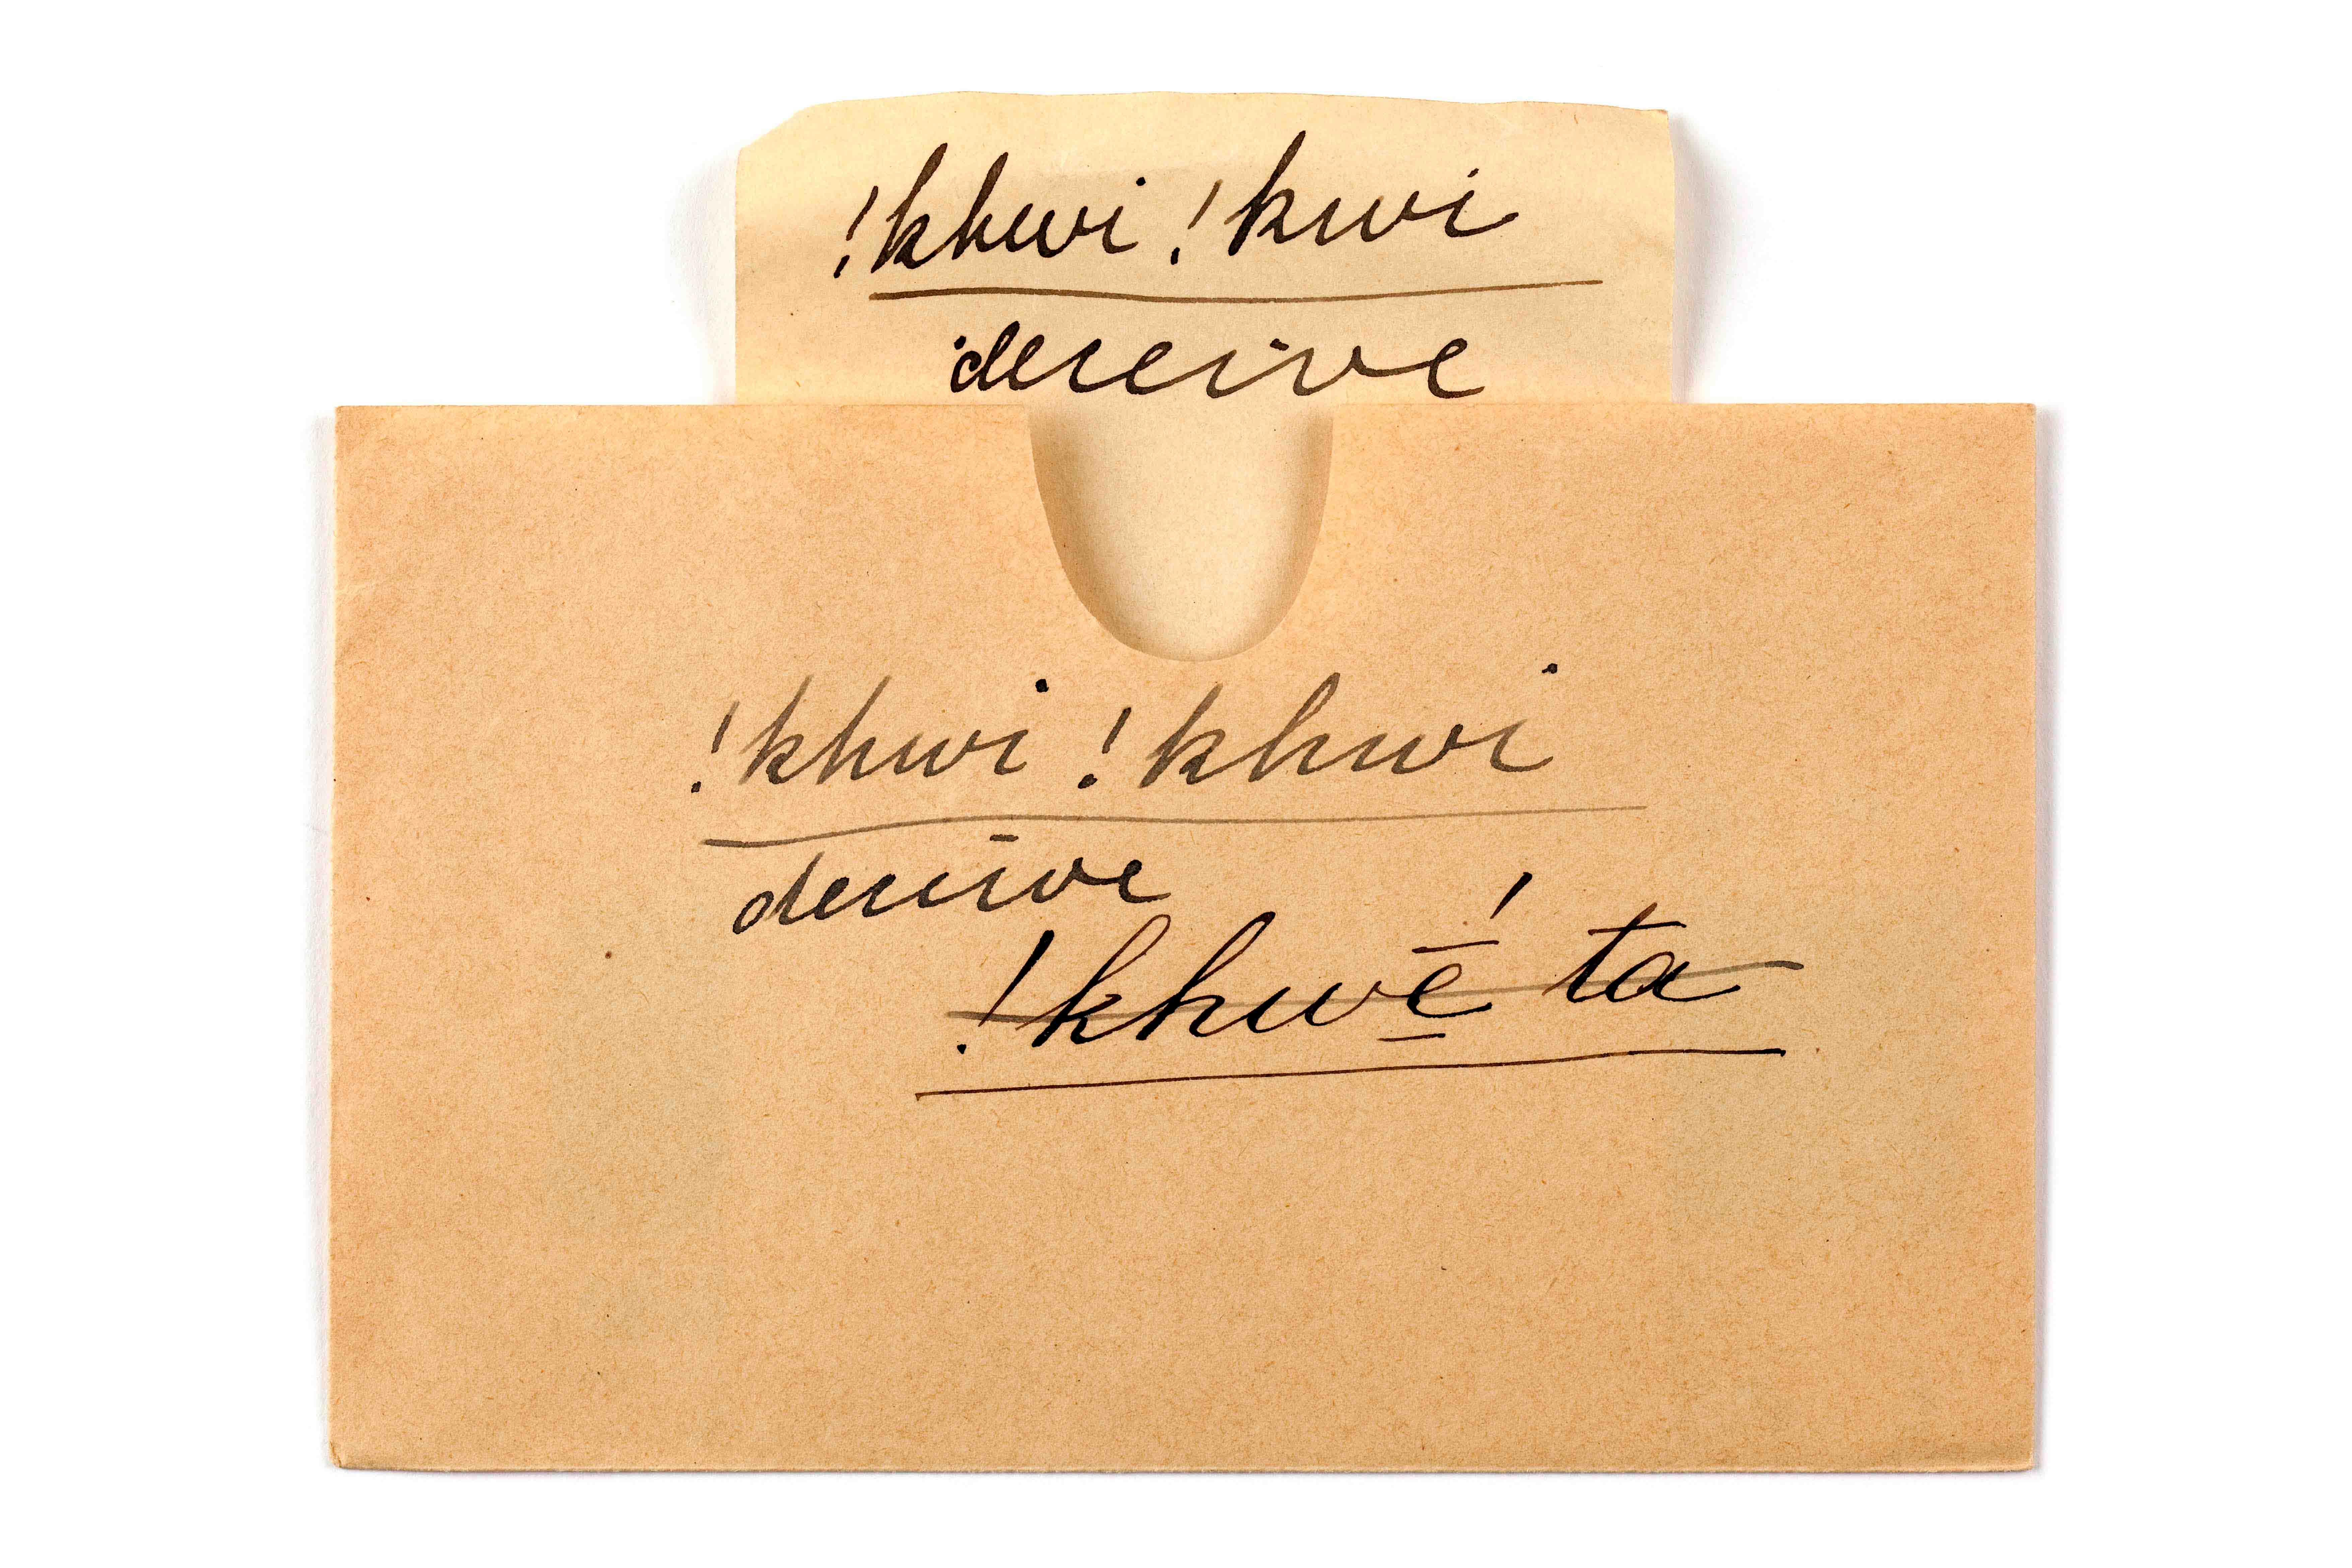 !khwi !kwi
deceive
!khwi !khwi
deceive
!khwé̱̄ ta